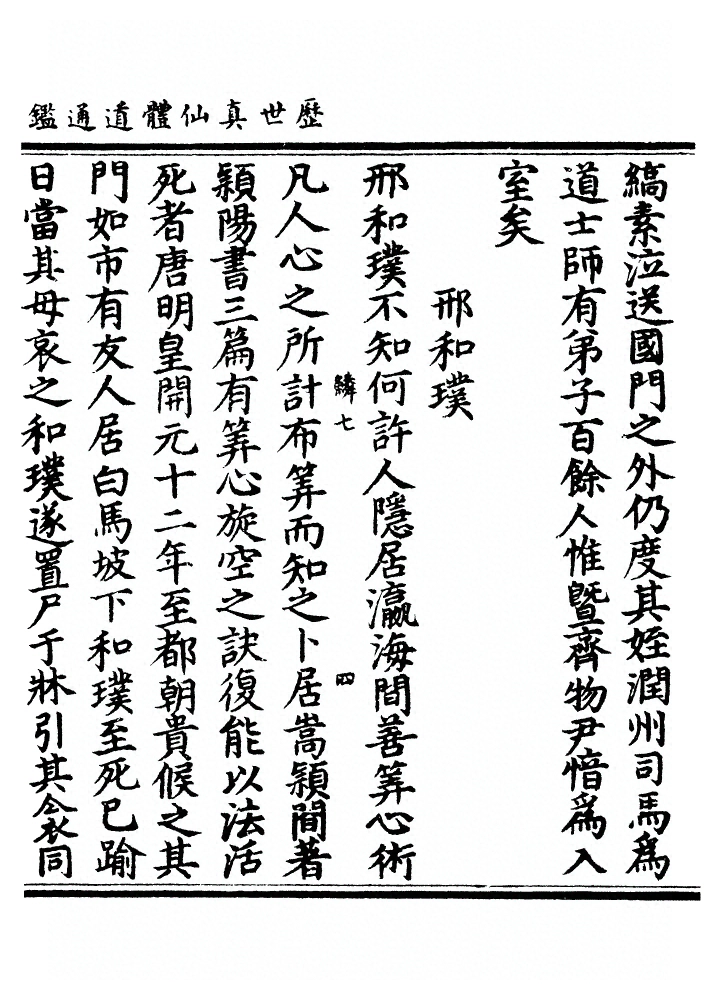 歷世真仙體道通鑑
縞素泣送國門之外仍度其姪潤州司馬爲
道士師有弟子百餘人惟暨齊物尹愔爲入
室矣
邢和璞
邢和璞不知何許人隱居瀛海間善筭心術
鱗七
四
凡人心之所計布筭而知之卜居嵩潁間著
潁陽書三篇有筭心旋空之訣復能以法活
死者唐明皇開元十二年至都朝貴候之其
門如市有友人居白馬坡下和璞至死已踰
日當其母哀之和璞遂置尸于牀引其衾同